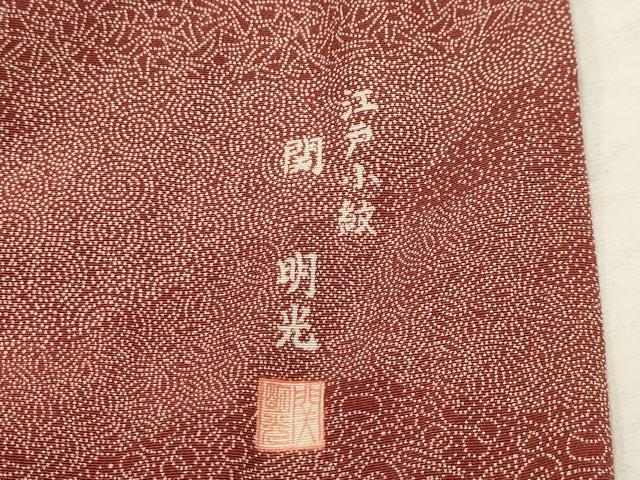 江戸小紋
関 明光